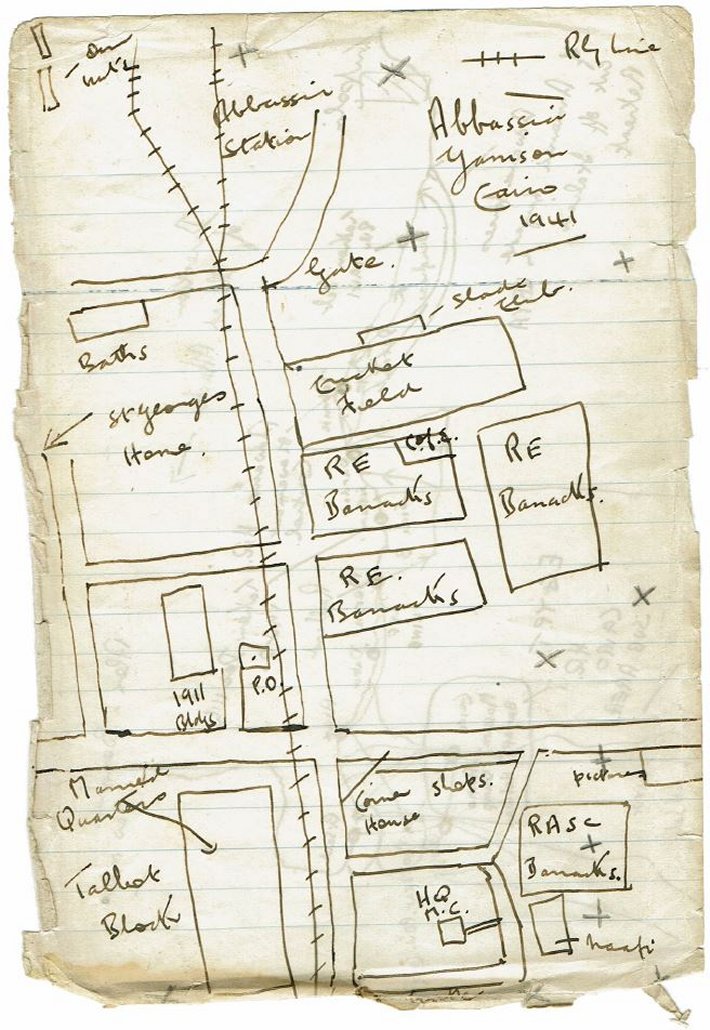 Rly Line
Abbassia
Station
Abbassia
Garrison
Cairo
1941
Gate.
Slade
Club.
Baths
Cricket
Field
St Georges
Home.
C of E.
RE
Barracks
RE
Barracks.
R.E.
Barracks
1911
Bldgs
P.O.
Married
Quarters
Corner
House
Shops.
pictures
RASC
Barracks.
Talbot
Block
HQ
M.C.
Naafi